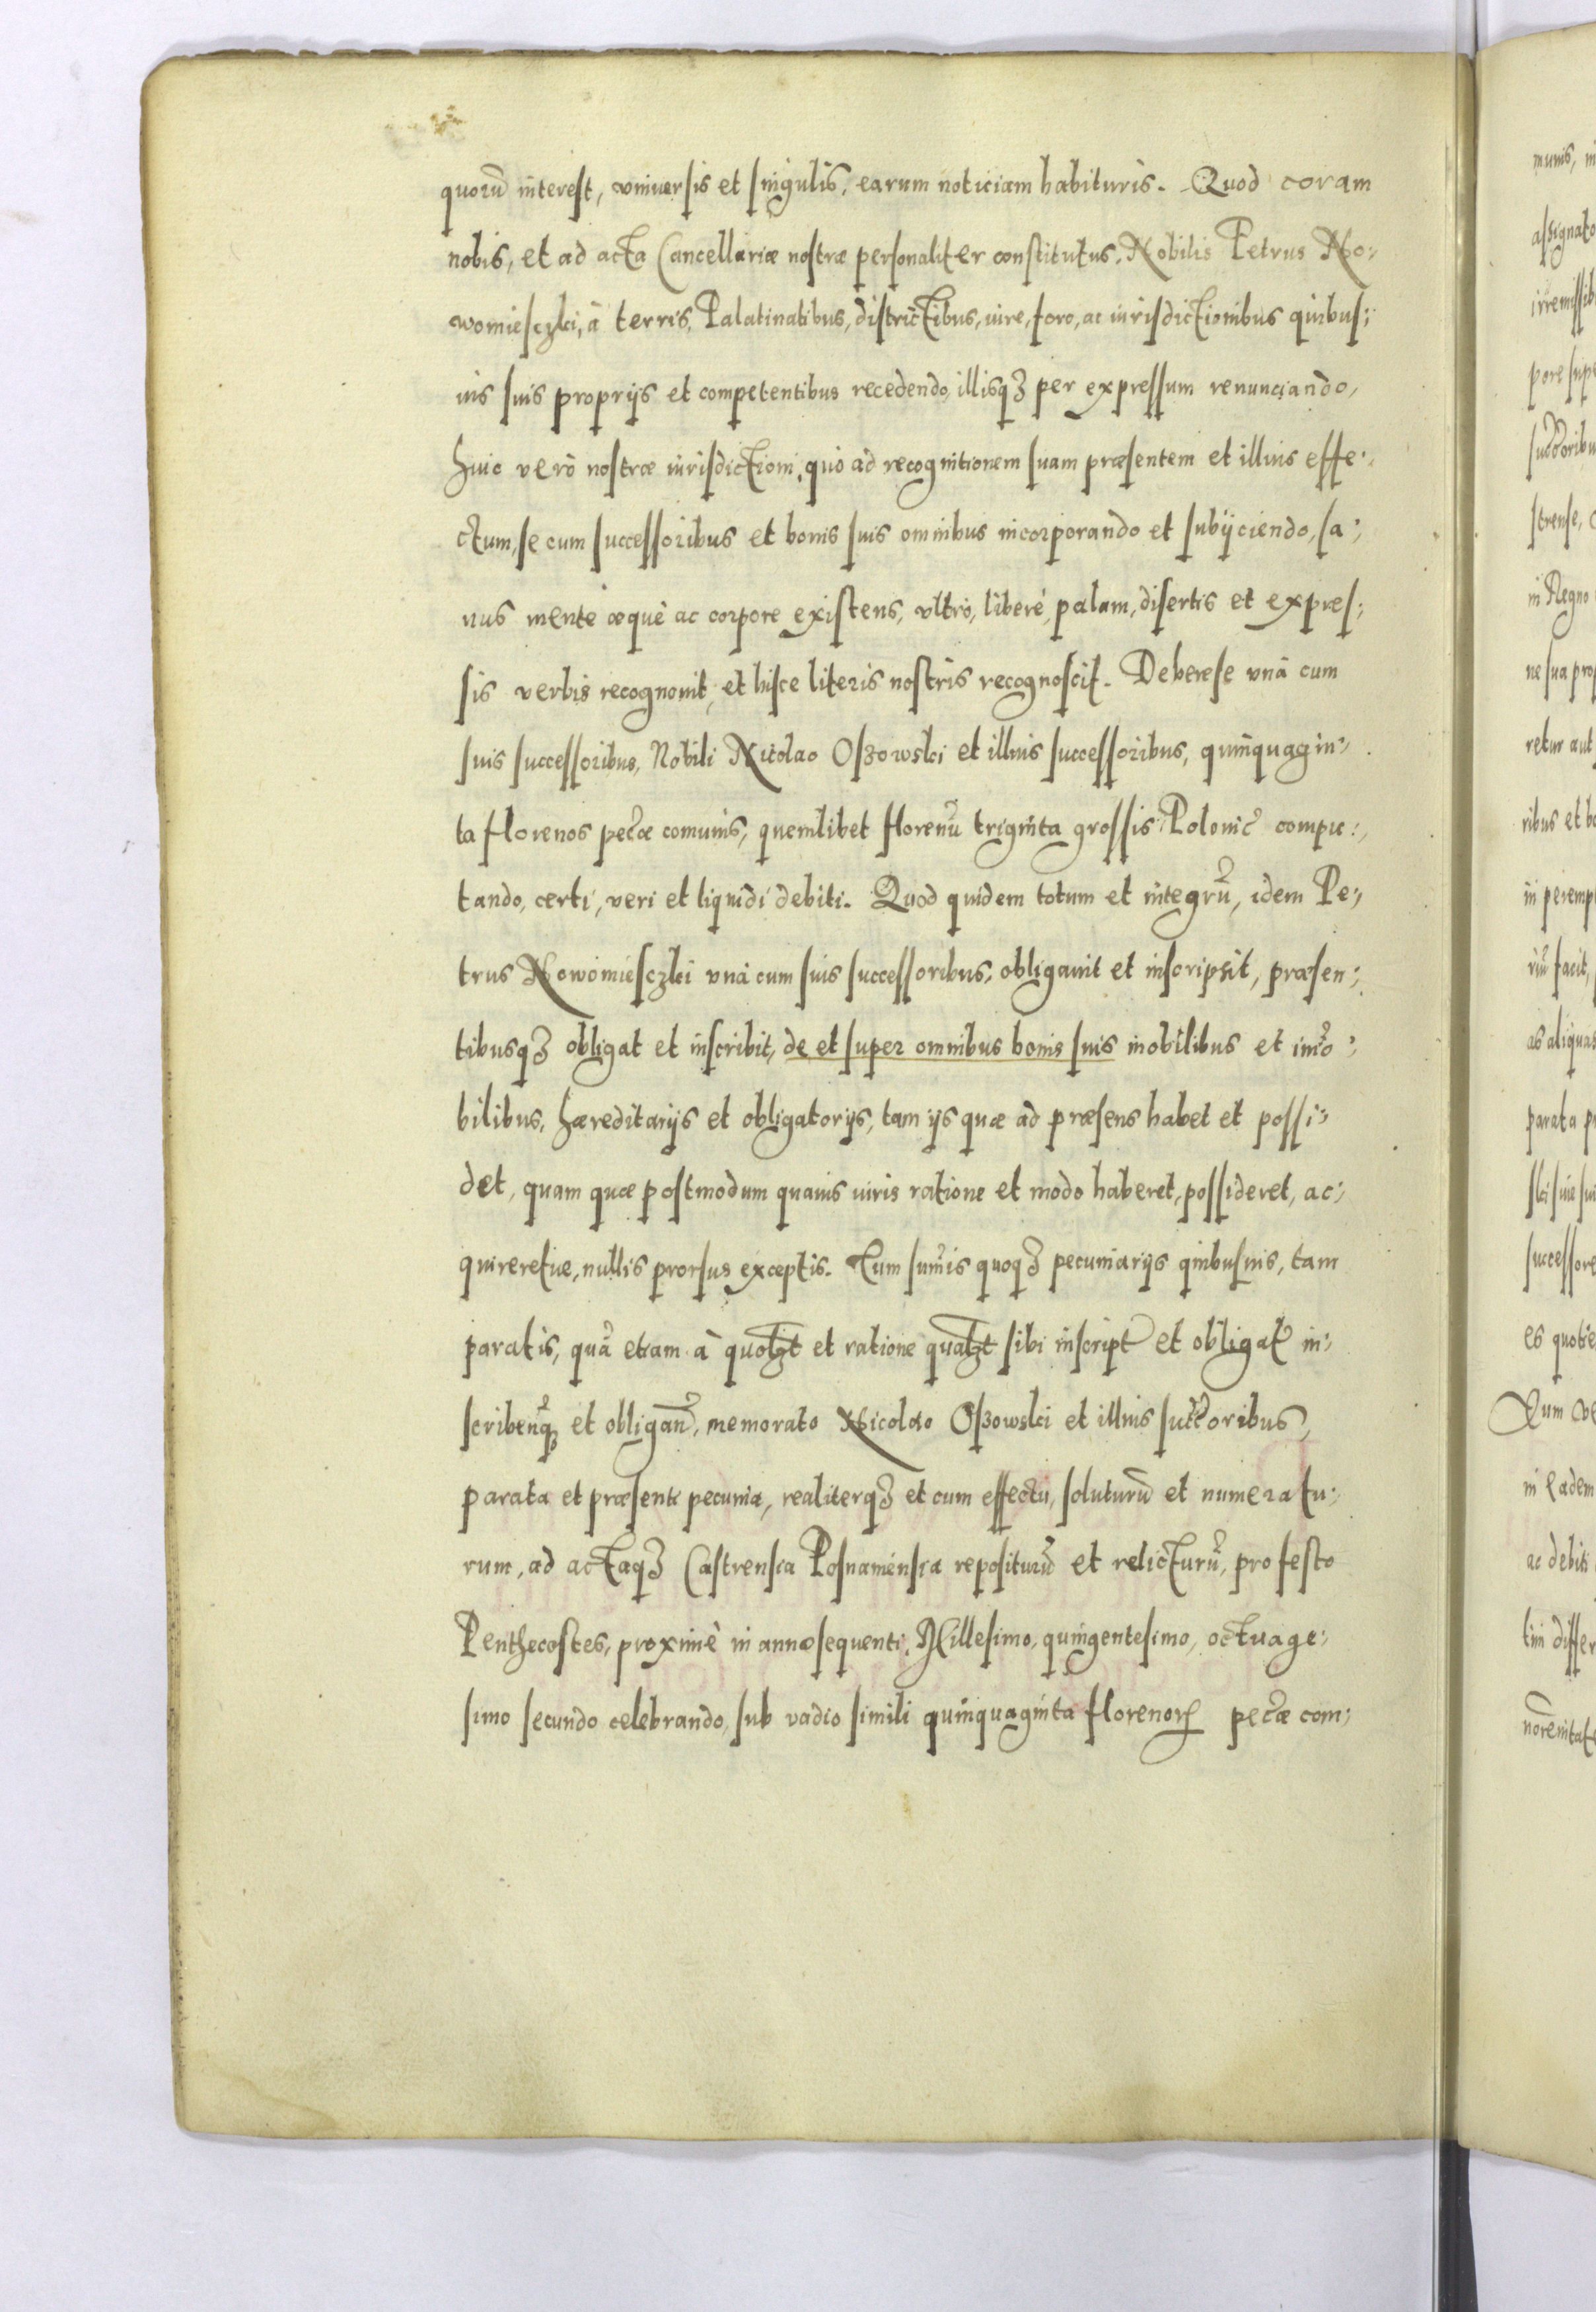 quorū interest, vniuersis et singulis, earum noticiam habituris. Quod coram
nobis, et ad acta Cancellariæ nostræ personaliter constitutus, Nobilis Petrus No-
womiesczki, à terris, Palatinatibus, districtibus, iure, foro, ac iurisdictionibus quibus-
uis suis proprijs et competentibus recedendo, illisqꝫ per expressum renunciando,
huic verò nostræ iurisdictioni, quo ad recognitionem suam præsentem et illius effe-
ctum, se cum successoribus et bonis suis omnibus incorporando et subijciendo, sa-
nus mente æquè ac corpore existens, vltrò, liberè, palam, disertis et expres-
sis verbis recognouit, et hisce literis nostris recognoscit. Deberese vnà cum
suis successoribus, Nobili Nicolao Oszowski et illius successoribus, quinquagin-
ta florenos pecæ comunis, quemlibet florenū triginta grossis Polonic compu-
tando, certi, veri et liquidi debiti. Quod quidem totum et integrū, idem Pe-
trus Nowomiesczki vnà cum suis successoribus, obligauit et inscripsit, præsen-
tibusqꝫ obligat et inscribit, de et super omnibus bonis suis mobilibus et imo-
bilibus, hæreditarijs et obligatorijs, tam ijs quæ ad præsens habet et possi-
det, quam quæ postmodum quauis iuris ratione et modo haberet, possideret, ac-
quireretue, nullis prorsus exceptis. Tum sumis quoqꝫ pecuniarijs quibusuis, tam
paratis, quā etiam à et ratione sibi inscript et obligat in-
scribenqꝫ et obligan, memorato Nicolao Oszowski et illius succoribus,
parata et præsenti pecunia, realiterqꝫ et cum effectu, soluturū et numeratu-
rum, ad actaqꝫ Castrensia Posnamensia repositurū et relicturū, pro festo
Penthecostes, proximè in anno sequenti, Millesimo, quingentesimo, octuage-
simo secundo celebrando, sub vadio simili quinquaginta florenorꝝ pecæ com-